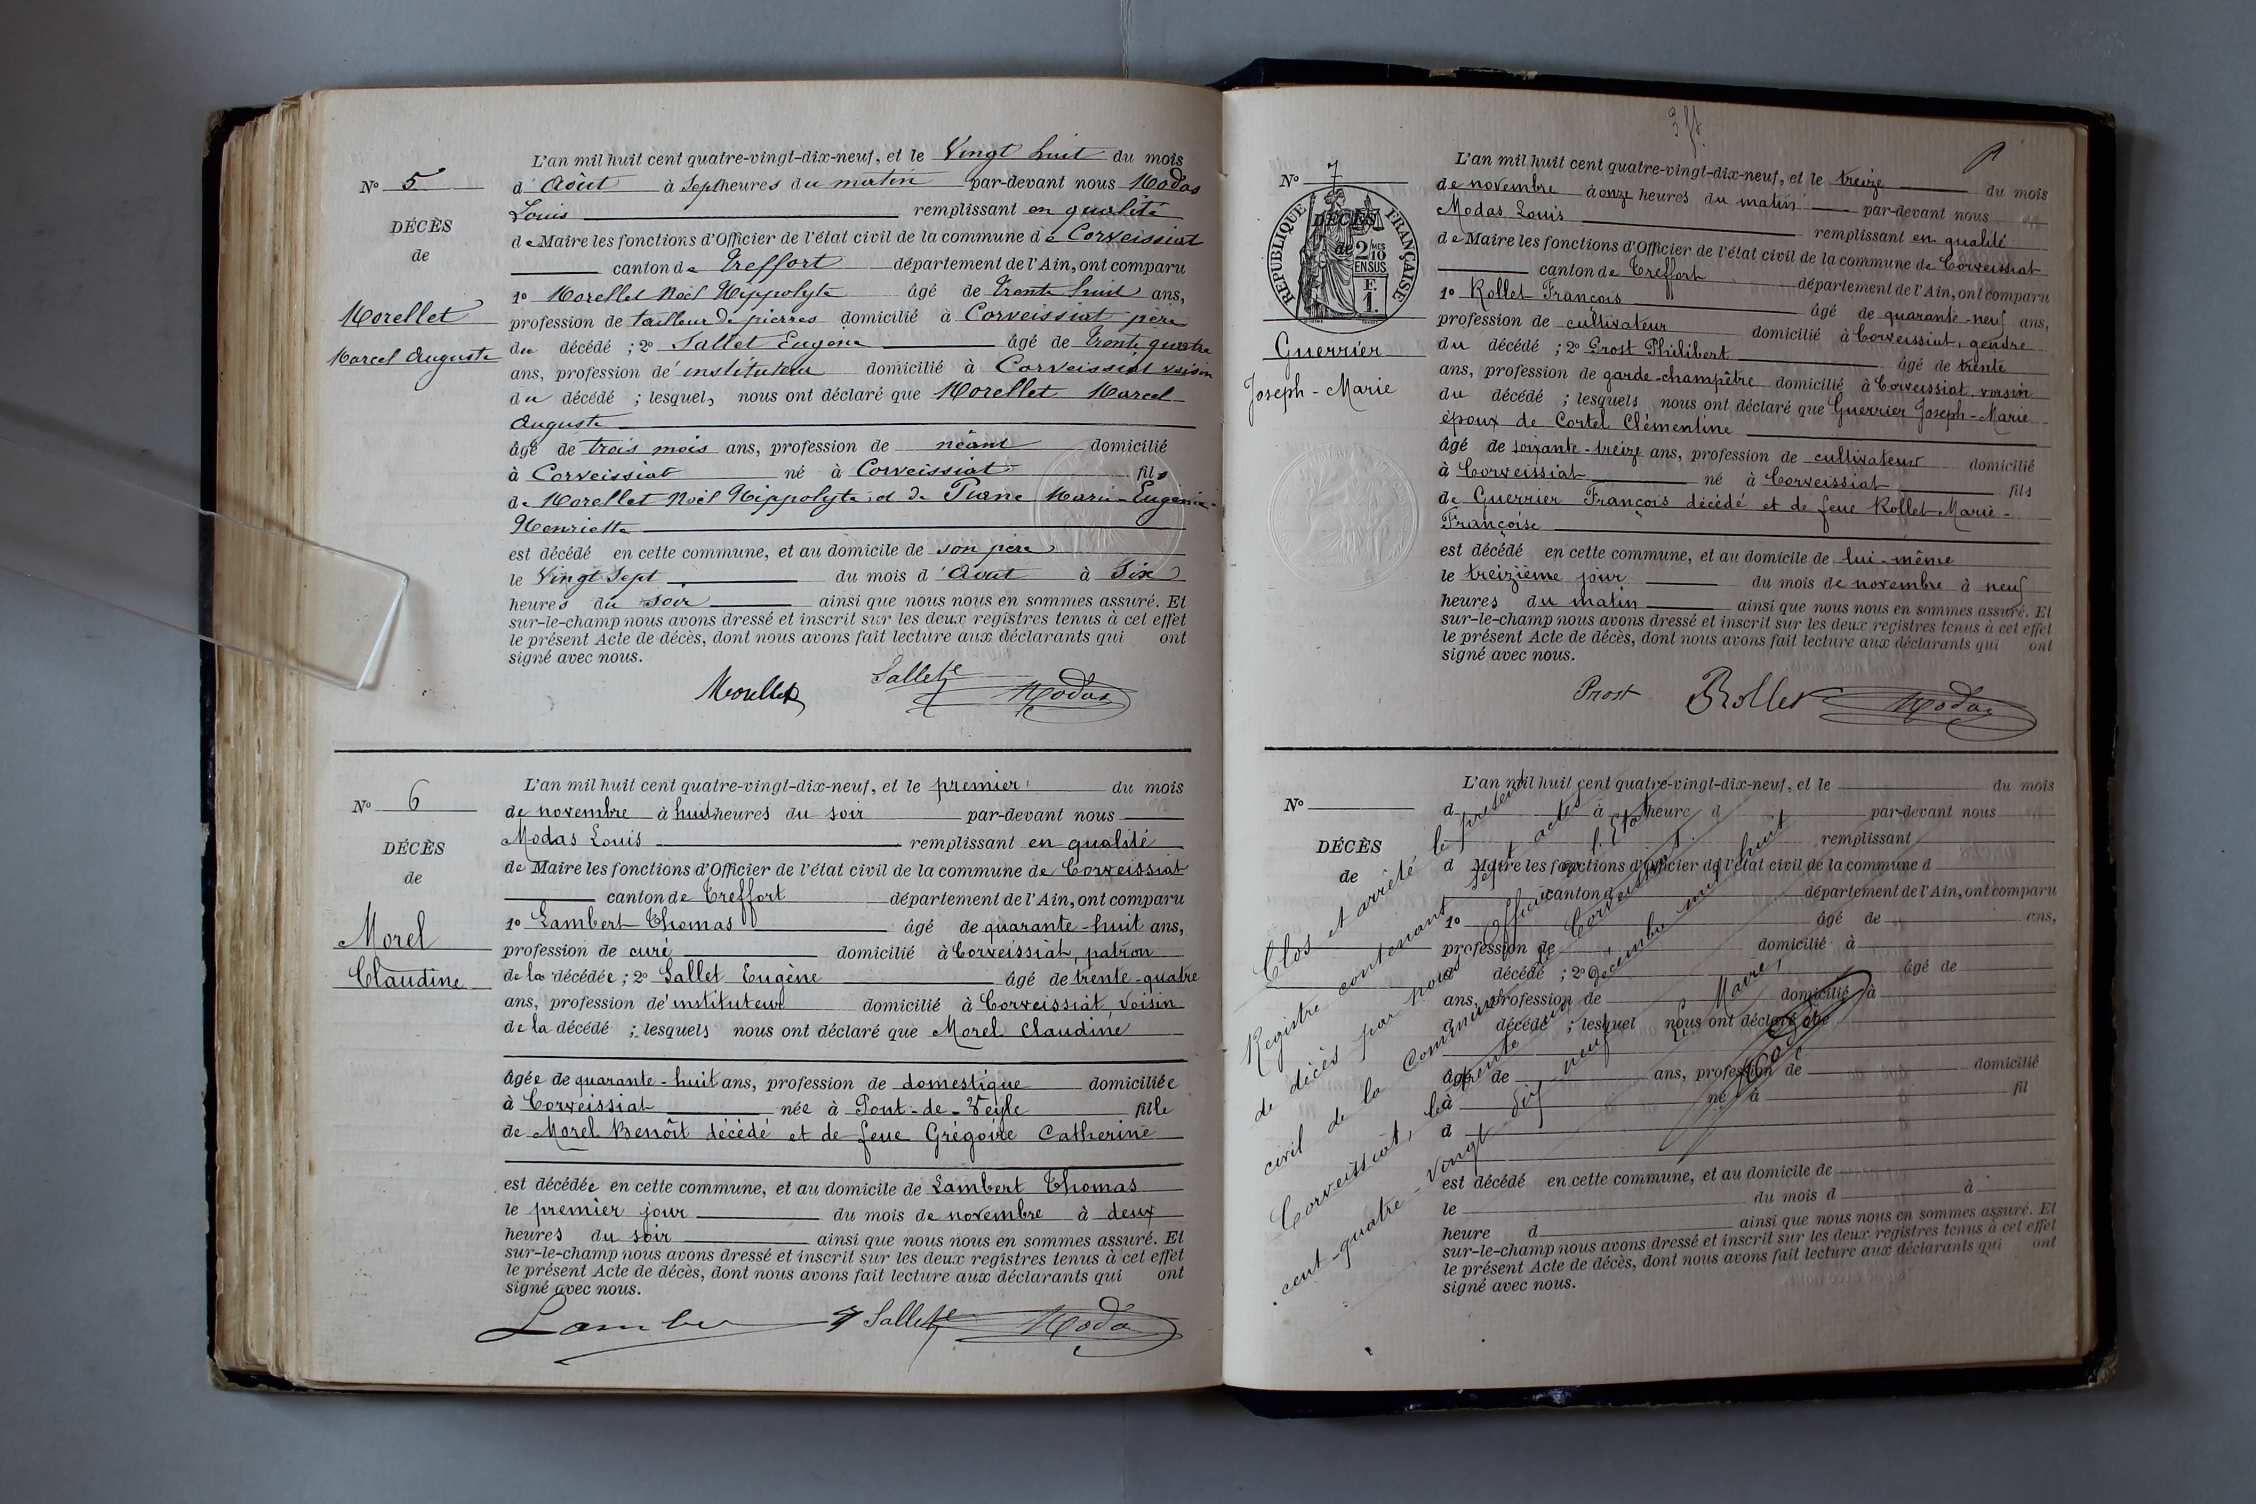 N° 5
DÉCÈS
de
Morellet
Marcel Auguste
L'an mil huit cent quatre-vingt-dix-neuf, et le Vingt huit du mois
d'Août à Sept heures du matin par-devant nous Modas
Louis remplissant en qualité
de Maire les fonctions d'Officier de l'état civil de la commune de Corveissiat
canton de Treffort département de l'Ain, ont comparu
1° Morellet Noël Hippolyte âgé de Trente huit ans,
profession de tailleur de pierres domicilié à Corveissiat père
du décédé ; 2° Sallet Eugène âgé de Trente quatre
ans, profession d'instituteur domicilié à Corveissiat voisin
du décédé ; lesquels nous ont déclaré que Morellet Marcel
Auguste
âgé de trois mois ans, profession de néant domicilié
à Corveissiat né à Corveissiat fils
de Morellet Noël Hippolyte et de Marie-Eugénie-
Henriette
est décédé en cette commune, et au domicile de son père
le Vingt Sept du mois d'Août à Six
heures du soir ainsi que nous nous en sommes assuré. Et
sur-le-champ nous avons dressé et inscrit sur les deux registres tenus à cet effet
le présent Acte de décès, dont nous avons fait lecture aux déclarants qui ont
signé avec nous.
Morellet Sallet Modas
N° 6
DÉCÈS
de
Morel
Claudine
L'an mil huit cent quatre-vingt-dix-neuf, et le premier du mois
de novembre à huit heures du soir par-devant nous
Modas Louis remplissant en qualité
de Maire les fonctions d'Officier de l'état civil de la commune de Corveissiat
canton de Treffort département de l'Ain, ont comparu
1° Lambert Thomas âgé de quarante-huit ans,
profession de curé domicilié à Corveissiat, patron
de la décédée ; 2° Sallet Eugène âgé de trente-quatre
ans, profession d'instituteur domicilié à Corveissiat, voisin
de la décédé ; lesquels nous ont déclaré que Morel Claudine
âgée de quarante-huit ans, profession de domestique domiciliée
à Corveissiat née à Pont-de-Veyle fille
de Morel Benoît décédé et de feue Grégoire Catherine
est décédée en cette commune, et au domicile de Lambert Thomas
le premier jour du mois de novembre à deux
heures du soir ainsi que nous nous en sommes assuré. Et
sur-le-champ nous avons dressé et inscrit sur les deux registres tenus à cet effet
le présent Acte de décès, dont nous avons fait lecture aux déclarants qui ont
signé avec nous.
Lambert Sallet Modas
N° 7
RÉPUBLIQUE FRANÇAISE
2/10MES
EN SUS
F.
1.
DÉCÈS
de
Guerrier
Joseph-Marie
L'an mil huit cent quatre-vingt-dix-neuf, et le treize du mois
de novembre à onze heures du matin par-devant nous
Modas Louis remplissant en qualité
de Maire les fonctions d'Officier de l'état civil de la commune de Corveissiat
canton de Treffort département de l'Ain, ont comparu
1° Rollet François âgé de quarante-neuf ans,
profession de cultivateur domicilié à Corveissiat, gendre
du décédé ; 2° Prost Philibert âgé de trente
ans, profession de garde-champêtre domicilié à Corveissiat, voisin
du décédé ; lesquels nous ont déclaré que Guerrier Joseph-Marie
époux de Cortel Clémentine
âgé de soixante-treize ans, profession de cultivateur domicilié
à Corveissiat né à Corveissiat fils
de Guerrier François décédé et de feue Rollet Marie-
Françoise
est décédé en cette commune, et au domicile de lui-même
le treizième jour du mois de novembre à neuf
heures du matin ainsi que nous nous en sommes assuré. Et
sur-le-champ nous avons dressé et inscrit sur les deux registres tenus à cet effet
le présent Acte de décès, dont nous avons fait lecture aux déclarants qui ont
signé avec nous.
Prost Rollet Modas
N°
DÉCÈS
de
L'an mil huit cent quatre-vingt-dix-neuf, et le du mois
d à heure d par-devant nous
remplissant
d Maire les fonctions d'Officier de l'état civil de la commune d
canton d département de l'Ain, ont comparu
1° âgé de ans,
profession de domicilié à
d décédé ; 2° âgé de
ans, profession de domicilié à
d décédé ; lesquel nous ont déclaré que
âgé de ans, profession de domicilié
à né à fil
d
est décédé en cette commune, et au domicile de
le du mois d à
heure d ainsi que nous nous en sommes assuré. Et
sur-le-champ nous avons dressé et inscrit sur les deux registres tenus à cet effet
le présent Acte de décès, dont nous avons fait lecture aux déclarants qui ont
signé avec nous.
Clos et arrêté le présent
Registre contenant sept actes
de décès par nous Officier de l'Etat
civil de la Commune de Corveissiat.
Corveissiat, le trente un Décembre mil huit
cent-quatre-vingt dix neuf
Le Maire,
Modas